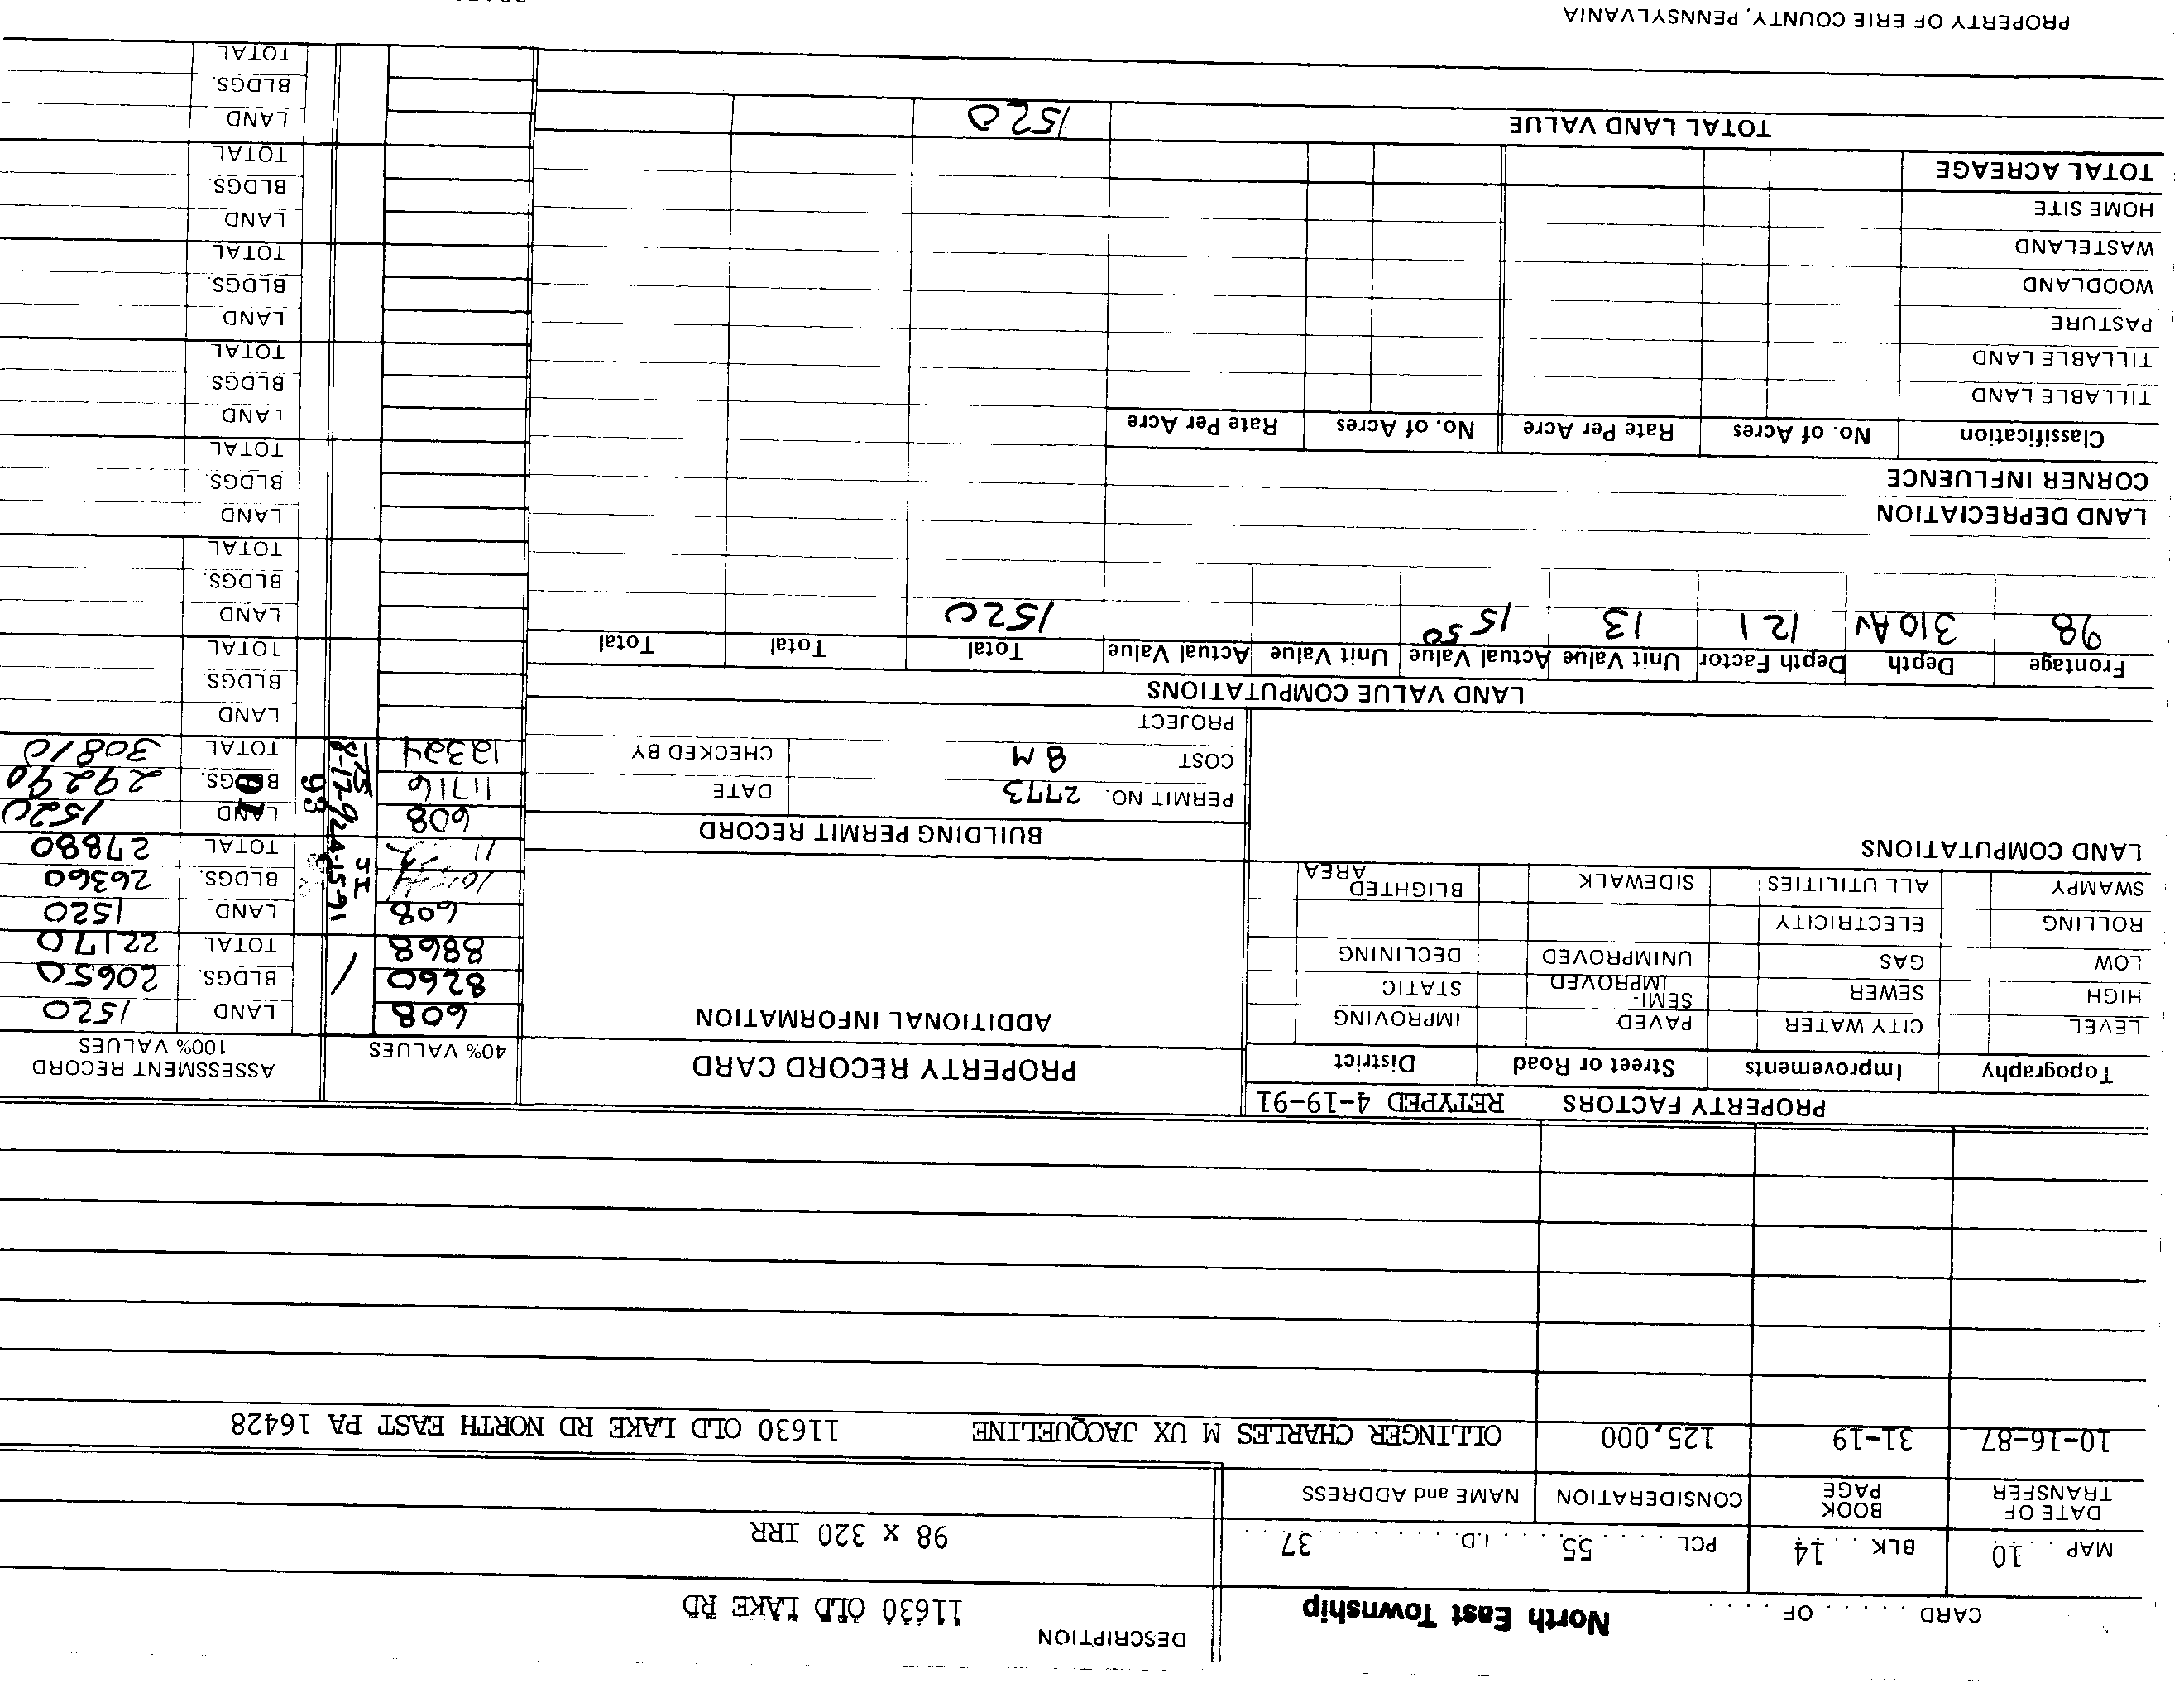 CARD ...... OF ......
North East Township
DESCRIPTION
11630 OLD LAKE RD
MAP . . 10 BLK . . 14 PCL . . . . . 55 . . . . . I.D. . . . . . . . 37
98 x 320 IRR
DATE OF TRANSFER BOOK PAGE CONSIDERATION NAME and ADDRESS
10-16-87 31-19 125,000 OLLINGER CHARLES M UX JACQUELINE 11630 OLD LAKE RD NORTH EAST PA 16428
PROPERTY FACTORS RETYPED 4-19-91
Topography Improvements Street or Road District
LEVEL CITY WATER PAVED IMPROVING
HIGH SEWER SEMI-IMPROVED STATIC
LOW GAS UNIMPROVED DECLINING
ROLLING ELECTRICITY
SWAMPY ALL UTILITIES SIDEWALK BLIGHTED AREA
LAND COMPUTATIONS
PROPERTY RECORD CARD
ADDITIONAL INFORMATION
BUILDING PERMIT RECORD
PERMIT NO. 2773 DATE
COST 8 M CHECKED BY
PROJECT
40% VALUES ASSESSMENT RECORD 100% VALUES
608 LAND 1520
8260 / BLDGS. 20650
8868 TOTAL 22170
608 LAND 1520
JI 4-15-91 BLDGS. 26360
TOTAL 27880
608 LAND 1520
11716 8-17-92 93 BLDGS. 10 29290
12324 TOTAL 30810
LAND
BLDGS.
TOTAL
LAND
BLDGS.
TOTAL
LAND
BLDGS.
TOTAL
LAND
BLDGS.
TOTAL
LAND
BLDGS.
TOTAL
LAND
BLDGS.
TOTAL
LAND
BLDGS.
TOTAL
LAND VALUE COMPUTATIONS
Frontage Depth Depth Factor Unit Value Actual Value Unit Value Actual Value Total Total Total
98 310 AV 121 13 15 50 1520
LAND DEPRECIATION
CORNER INFLUENCE
Classification No. of Acres Rate Per Acre No. of Acres Rate Per Acre
TILLABLE LAND
TILLABLE LAND
PASTURE
WOODLAND
WASTELAND
HOME SITE
TOTAL ACREAGE
TOTAL LAND VALUE 1520
PROPERTY OF ERIE COUNTY, PENNSYLVANIA